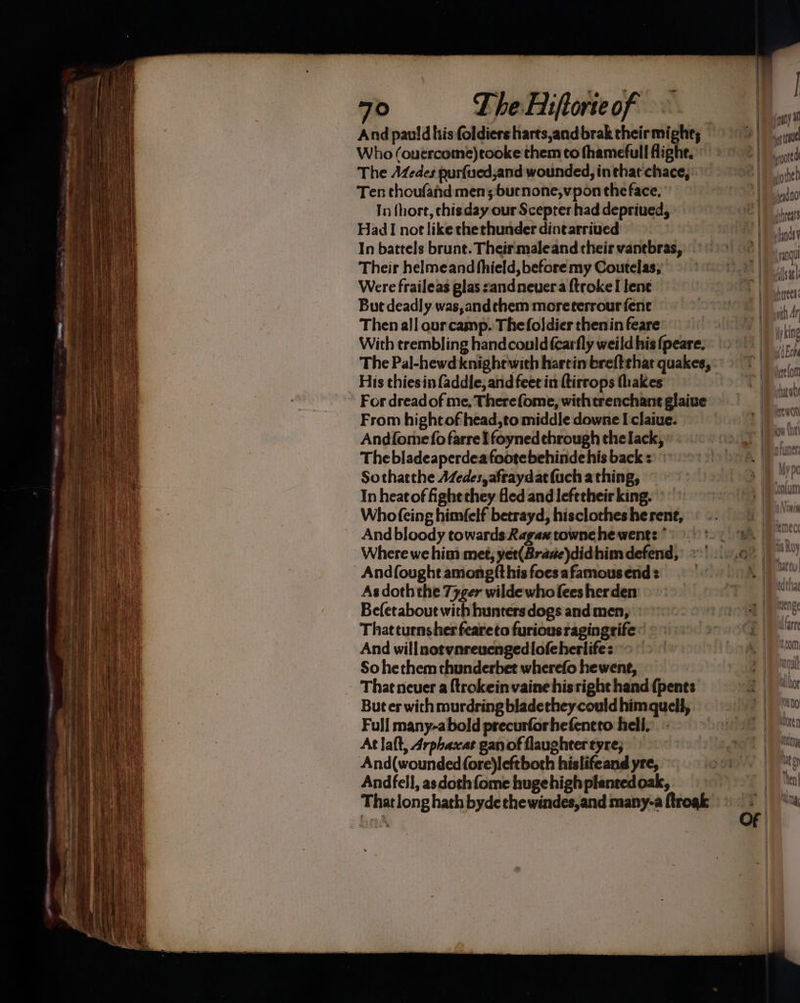 70 The Historie of
And pauld his soldiers harts, and brak their might,
Who (ouercome) tooke them to shamefull flight.
The Medes pursued, and wounded, in that chace,
Ten thousand men; but none, vpon the face.
In short, this day our Scepter had depriued,
Had I not like the thunder dint arriued
In battels brunt. Their male and their vantbras,
Their helme and shield, before my Coutelas,
Were fraile as glas: and neuer a stroke I lent
But deadly was, and them more terrour sent
Then all our camp. The soldier then in feare
With trembling hand could scarsly weild his speare.
The Pal-hewd knight with hart in brest that quakes,
His thies in saddle, and feet in stirrops shakes
For dread of me, There some, with trenchant glaiue
From hight of head, to middle downe I claiue.
And some so farre I foyned through the Iack,
The blade aperde a foote behinde his back:
So that the Medes, afrayd at such a thing,
In heat of fight they fled and left their king.
Who seing himself betrayd, his clothes he rent,
And bloody towards Ragau towne he went:
Where we him met, yet (Braue) did him defend,
And sought amongst his foes a famous end:
As doth the Tyger wilde who sees her den
Beset about with hunters dogs and men,
That turns her feare to furious raging rife
And will not vnreuenged lose her life:
So he them thunderbet wherso he went,
That neuer a stroke in vaine his right hand spent:
But er with murdring blade they could him quell,
Full many-a bold precursor he sent to hell.
At last, Arphaxat gan of slaughter tyre,
And (wounded sore) left both his life and yre,
And fell, as doth some huge high planted oak,
That long hath byde the windes, and many-a stroak
Of